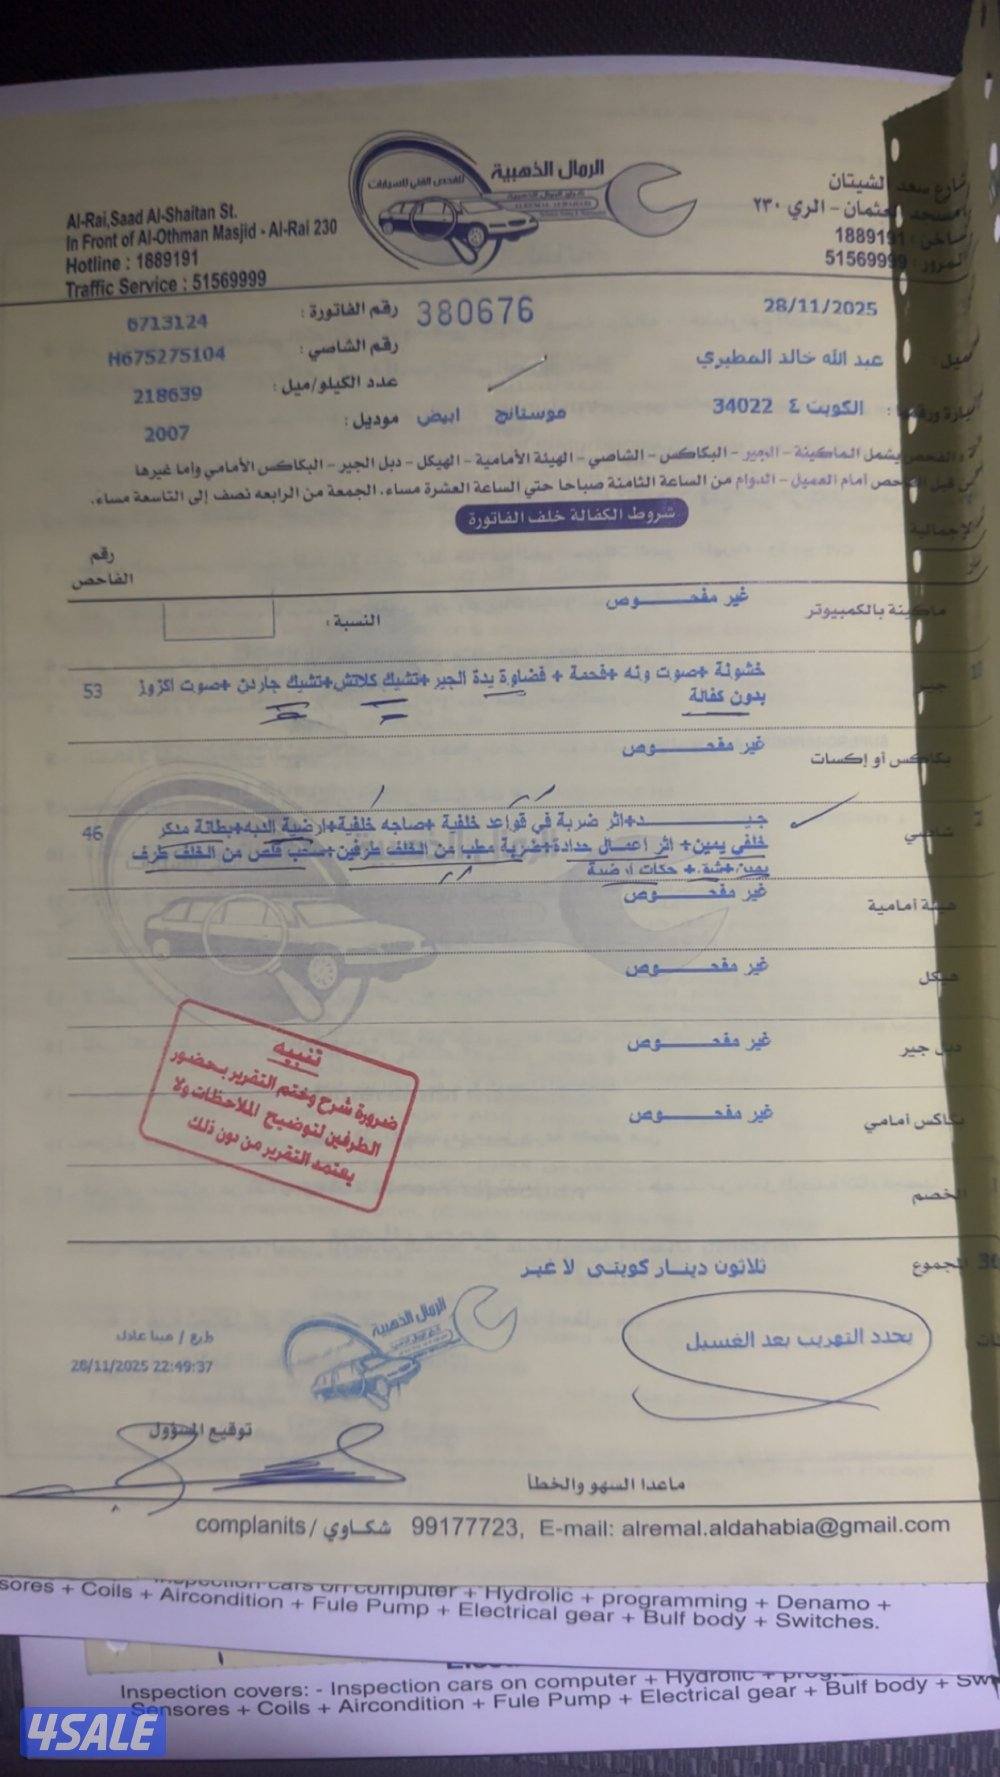 الرمال الذهبية
للفحص الفني للسيارات
Al-Rai,Saad Al-Shaitan St.
In Front of Al-Othman Masjid - Al-Rai 230
Hotline : 1889191
Traffic Service : 51569999
شارع سعد الشيتان
مسجد العثمان - الري ٢٣٠
ساخن : 1889191
المرور : 51569999
28/11/2025
380676
رقم الفاتورة : 6713124
عبد الله خالد المطيري
رقم الشاصي : H675275104
عدد الكيلو/ميل : 218639
الكويت ٤ 34022 موستانج ابيض
موديل : 2007
والفحص يشمل الماكينة - الجير - البكاكس - الشاصي - الهيئة الأمامية - الهيكل - دبل الجير - البكاكس الأمامي وأما غيرها
الفحص أمام العميل - الدوام من الساعة الثامنة صباحا حتي الساعة العشرة مساء، الجمعة من الرابعه نصف إلى التاسعة مساء.
شروط الكفالة خلف الفاتورة
الإجمالية
رقم
الفاحص
ماكينة بالكمبيوتر غير مفحوص النسبة :
جير خشونة +صوت ونه +فحمة + قضاوة يدة الجير +تشيك كلاتش+تشيك جاردن +صوت اكزوز 53
بدون كفالة
بكاكس أو إكسات غير مفحوص
شاصي جيد+اثر ضربة في قواعد خلفية +صاجه خلفية+ارضية الدبه+بطانة مدكر 46
خلفي يمين+ اثر اعمال حدادة+ضربة مطبا من الخلف طرفين+سحب قلص من الخلف طرف
يمين+شق + حكات ارضية
هيئة أمامية غير مفحوص
هيكل غير مفحوص
دبل جير غير مفحوص
بكاكس أمامي غير مفحوص
تنبيه
ضرورة شرح وختم التقرير بحضور
الطرفين لتوضيح الملاحظات ولا
يعتمد التقرير من دون ذلك
الخصم
المجموع ثلاثون دينار كويتى لا غير
يحدد التهريب بعد الغسيل
الرمال الذهبية
طبع / مينا عادل
28/11/2025 22:49:37
توقيع المسؤول
ماعدا السهو والخطأ
complanits / شكاوي 99177723, E-mail: alremal.aldahabia@gmail.com
Inspection cars on computer + Hydrolic + programming + Denamo +
sores + Coils + Aircondition + Fule Pump + Electrical gear + Bulf body + Switches.
Inspection covers: - Inspection cars on computer + Hydrolic +
Sensores + Coils + Aircondition + Fule Pump + Electrical gear + Bulf body +
4SALE